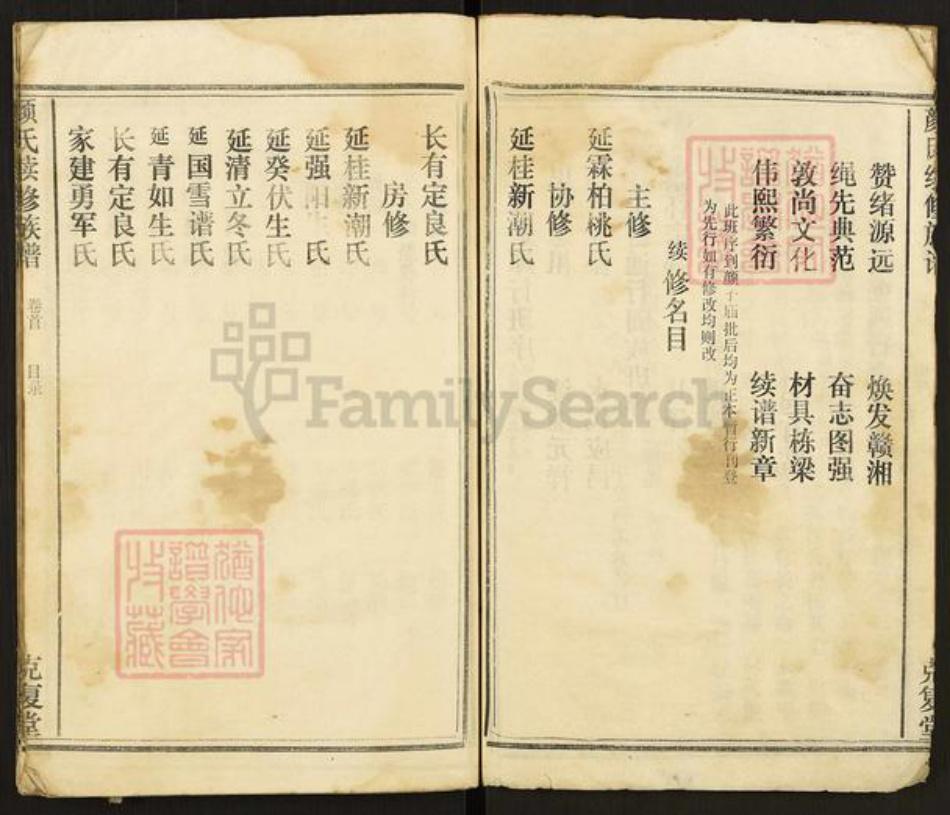 颜氏续修族谱
克复堂
赞绪源远 焕发赣湘
绳先典范 奋志图强
敦尚文化 材具栋梁
伟熙繁衍 续谱新章
此班序到颜子庙批后均为正本暂行刊登
为先行如有修改均则改
续修名目
主修
延霖柏桃氏
协修
延桂新潮氏
长有定良氏
房修
延桂新潮氏
延强阳生氏
延癸伏生氏
延清立冬氏
延国雪谱氏
延青如生氏
长有定良氏
家建勇军氏
颜氏续修族谱
卷首
目录
克复堂
犹他家谱学会收藏
犹他家譜學會收藏
FamilySearch